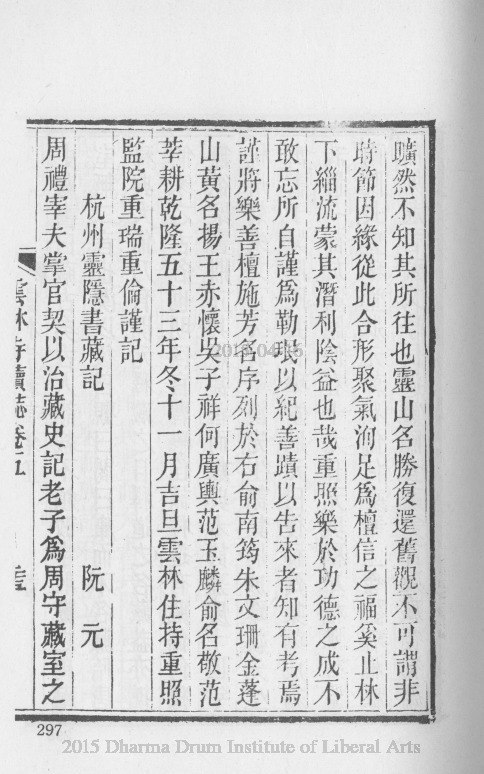 曠然不知其所往也靈山名勝復還舊觀不可謂非
時節因緣從此合形聚氣洵足爲檀信之福奚止林
下緇流蒙其潛利陰益也哉重照樂於功德之成不
敢忘所自謹爲勒珉以紀善蹟以告來者知有考焉
謹將樂善檀施芳名序列於右俞南筠朱文珊金蓬
山黃名揚王赤懷吳子祥何廣輿范玉麟俞名敬范
莘耕乾隆五十三年冬十一月吉旦雲林住持重照
監院重瑞重倫謹記
杭州靈隱書藏記 阮元
周禮宰夫掌官契以治藏史記老子爲周守藏室之
雲林寺續誌卷五
297
2015 Dharma Drum Institute of Liberal Arts